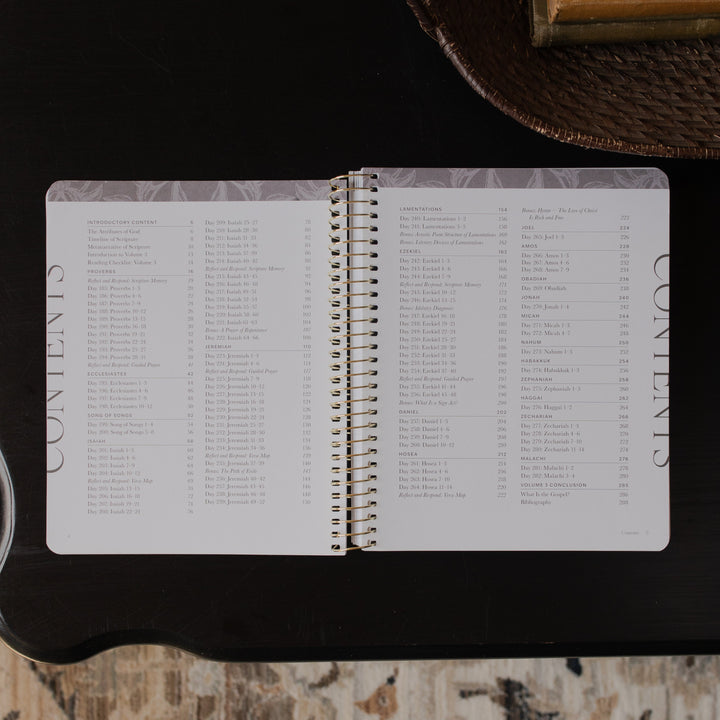 CONTENTS
INTRODUCTORY CONTENT 6
The Attributes of God 6
Timeline of Scripture 8
Metanarrative of Scripture 10
Introduction to Volume 3 13
Reading Checklist: Volume 3 14
PROVERBS 16
Reflect and Respond: Scripture Memory 19
Day 185: Proverbs 1–3
Day 186: Proverbs 4–6 22
Day 187: Proverbs 7–9 24
Day 188: Proverbs 10–12 26
Day 189: Proverbs 13–15 28
Day 190: Proverbs 16–18 30
Day 191: Proverbs 19–21 32
Day 192: Proverbs 22–24 34
Day 193: Proverbs 25–27 36
Day 194: Proverbs 28–31 38
Reflect and Respond: Guided Prayer 41
ECCLESIASTES 42
Day 195: Ecclesiastes 1–3 44
Day 196: Ecclesiastes 4–6 46
Day 197: Ecclesiastes 7–9 48
Day 198: Ecclesiastes 10–12 50
SONG OF SONGS 52
Day 199: Song of Songs 1–4 54
Day 200: Song of Songs 5–8 56
ISAIAH 58
Day 201: Isaiah 1–3 60
Day 202: Isaiah 4–6 62
Day 203: Isaiah 7–9 64
Day 204: Isaiah 10–12 66
Reflect and Respond: Verse Map 69
Day 205: Isaiah 13–15 70
Day 206: Isaiah 16–18 72
Day 207: Isaiah 19–21 74
Day 208: Isaiah 22–24 76
Day 209: Isaiah 25–27 78
Day 210: Isaiah 28–30 80
Day 211: Isaiah 31–33 82
Day 212: Isaiah 34–36 84
Day 213: Isaiah 37–39 86
Day 214: Isaiah 40–42 88
Reflect and Respond: Scripture Memory 91
Day 215: Isaiah 43–45 92
Day 216: Isaiah 46–48 94
Day 217: Isaiah 49–51 96
Day 218: Isaiah 52–54 98
Day 219: Isaiah 55–57 100
Day 220: Isaiah 58–60 102
Day 221: Isaiah 61–63 104
Bonus: A Prayer of Repentance 107
Day 222: Isaiah 64–66 108
JEREMIAH 110
Day 223: Jeremiah 1–3 112
Day 224: Jeremiah 4–6 114
Reflect and Respond: Guided Prayer 117
Day 225: Jeremiah 7–9 118
Day 226: Jeremiah 10–12 120
Day 227: Jeremiah 13–15 122
Day 228: Jeremiah 16–18 124
Day 229: Jeremiah 19–21 126
Day 230: Jeremiah 22–24 128
Day 231: Jeremiah 25–27 130
Day 232: Jeremiah 28–30 132
Day 233: Jeremiah 31–33 134
Day 234: Jeremiah 34–36 136
Reflect and Respond: Verse Map 139
Day 235: Jeremiah 37–39 140
Bonus: The Path of Exile
Day 236: Jeremiah 40–42 144
Day 237: Jeremiah 43–45 146
Day 238: Jeremiah 46–48 148
Day 239: Jeremiah 49–52 150
LAMENTATIONS 154
Day 240: Lamentations 1–2 156
Day 241: Lamentations 3–5 158
Bonus: Acrostic Poem Structure of Lamentations 160
Bonus: Literary Devices of Lamentations 162
EZEKIEL 163
Day 242: Ezekiel 1–3
Day 243: Ezekiel 4–6 166
Day 244: Ezekiel 7–9 168
Reflect and Respond: Scripture Memory 171
Day 245: Ezekiel 10–12 172
Day 246: Ezekiel 13–15 174
Bonus: Idolatry Diagnosis 176
Day 247: Ezekiel 16–18 178
Day 248: Ezekiel 19–21 180
Day 249: Ezekiel 22–24 182
Day 250: Ezekiel 25–27 184
Day 251: Ezekiel 28–30 186
Day 252: Ezekiel 31–33 188
Day 253: Ezekiel 34–36 190
Day 254: Ezekiel 37–39 192
Reflect and Respond: Guided Prayer
Day 255: Ezekiel 40–44 196
Day 256: Ezekiel 45–48 198
Bonus: What Is a Sign Act? 200
DANIEL 202
Day 257: Daniel 1–3 204
Day 258: Daniel 4–6 206
Day 259: Daniel 7–9 208
Day 260: Daniel 10–12 210
HOSEA 212
Day 261: Hosea 1–3 214
Day 262: Hosea 4–6 216
Day 263: Hosea 7–10 218
Day 264: Hosea 11–14 220
Reflect and Respond: Verse Map 222
Bonus: Hymn — The Love of Christ
Is Rich and Free 223
JOEL 224
Day 265: Joel 1–3 226
AMOS 228
Day 266: Amos 1–3 230
Day 267: Amos 4–6 232
Day 268: Amos 7–9 234
OBADIAH 236
Day 269: Obadiah 238
JONAH 240
Day 270: Jonah 1–4 242
MICAH 244
Day 271: Micah 1–3 246
Day 272: Micah 4–7 248
NAHUM 250
Day 273: Nahum 1–3 252
HABAKKUK 254
Day 274: Habakkuk 1–3 256
ZEPHANIAH 258
Day 275: Zephaniah 1–3 260
HAGGAI 262
Day 276: Haggai 1–2 264
ZECHARIAH 266
Day 277: Zechariah 1–3 268
Day 278: Zechariah 4–6 270
Day 279: Zechariah 7–10 272
Day 280: Zechariah 11–14 274
MALACHI 276
Day 281: Malachi 1–2 278
Day 282: Malachi 3–4 280
VOLUME 3 CONCLUSION 285
What Is the Gospel? 286
Bibliography 288
Contents 5
CONTENTS